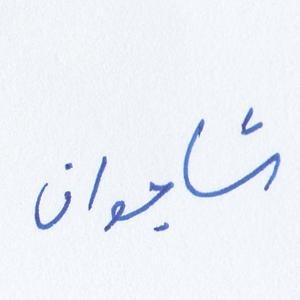 شاجوان